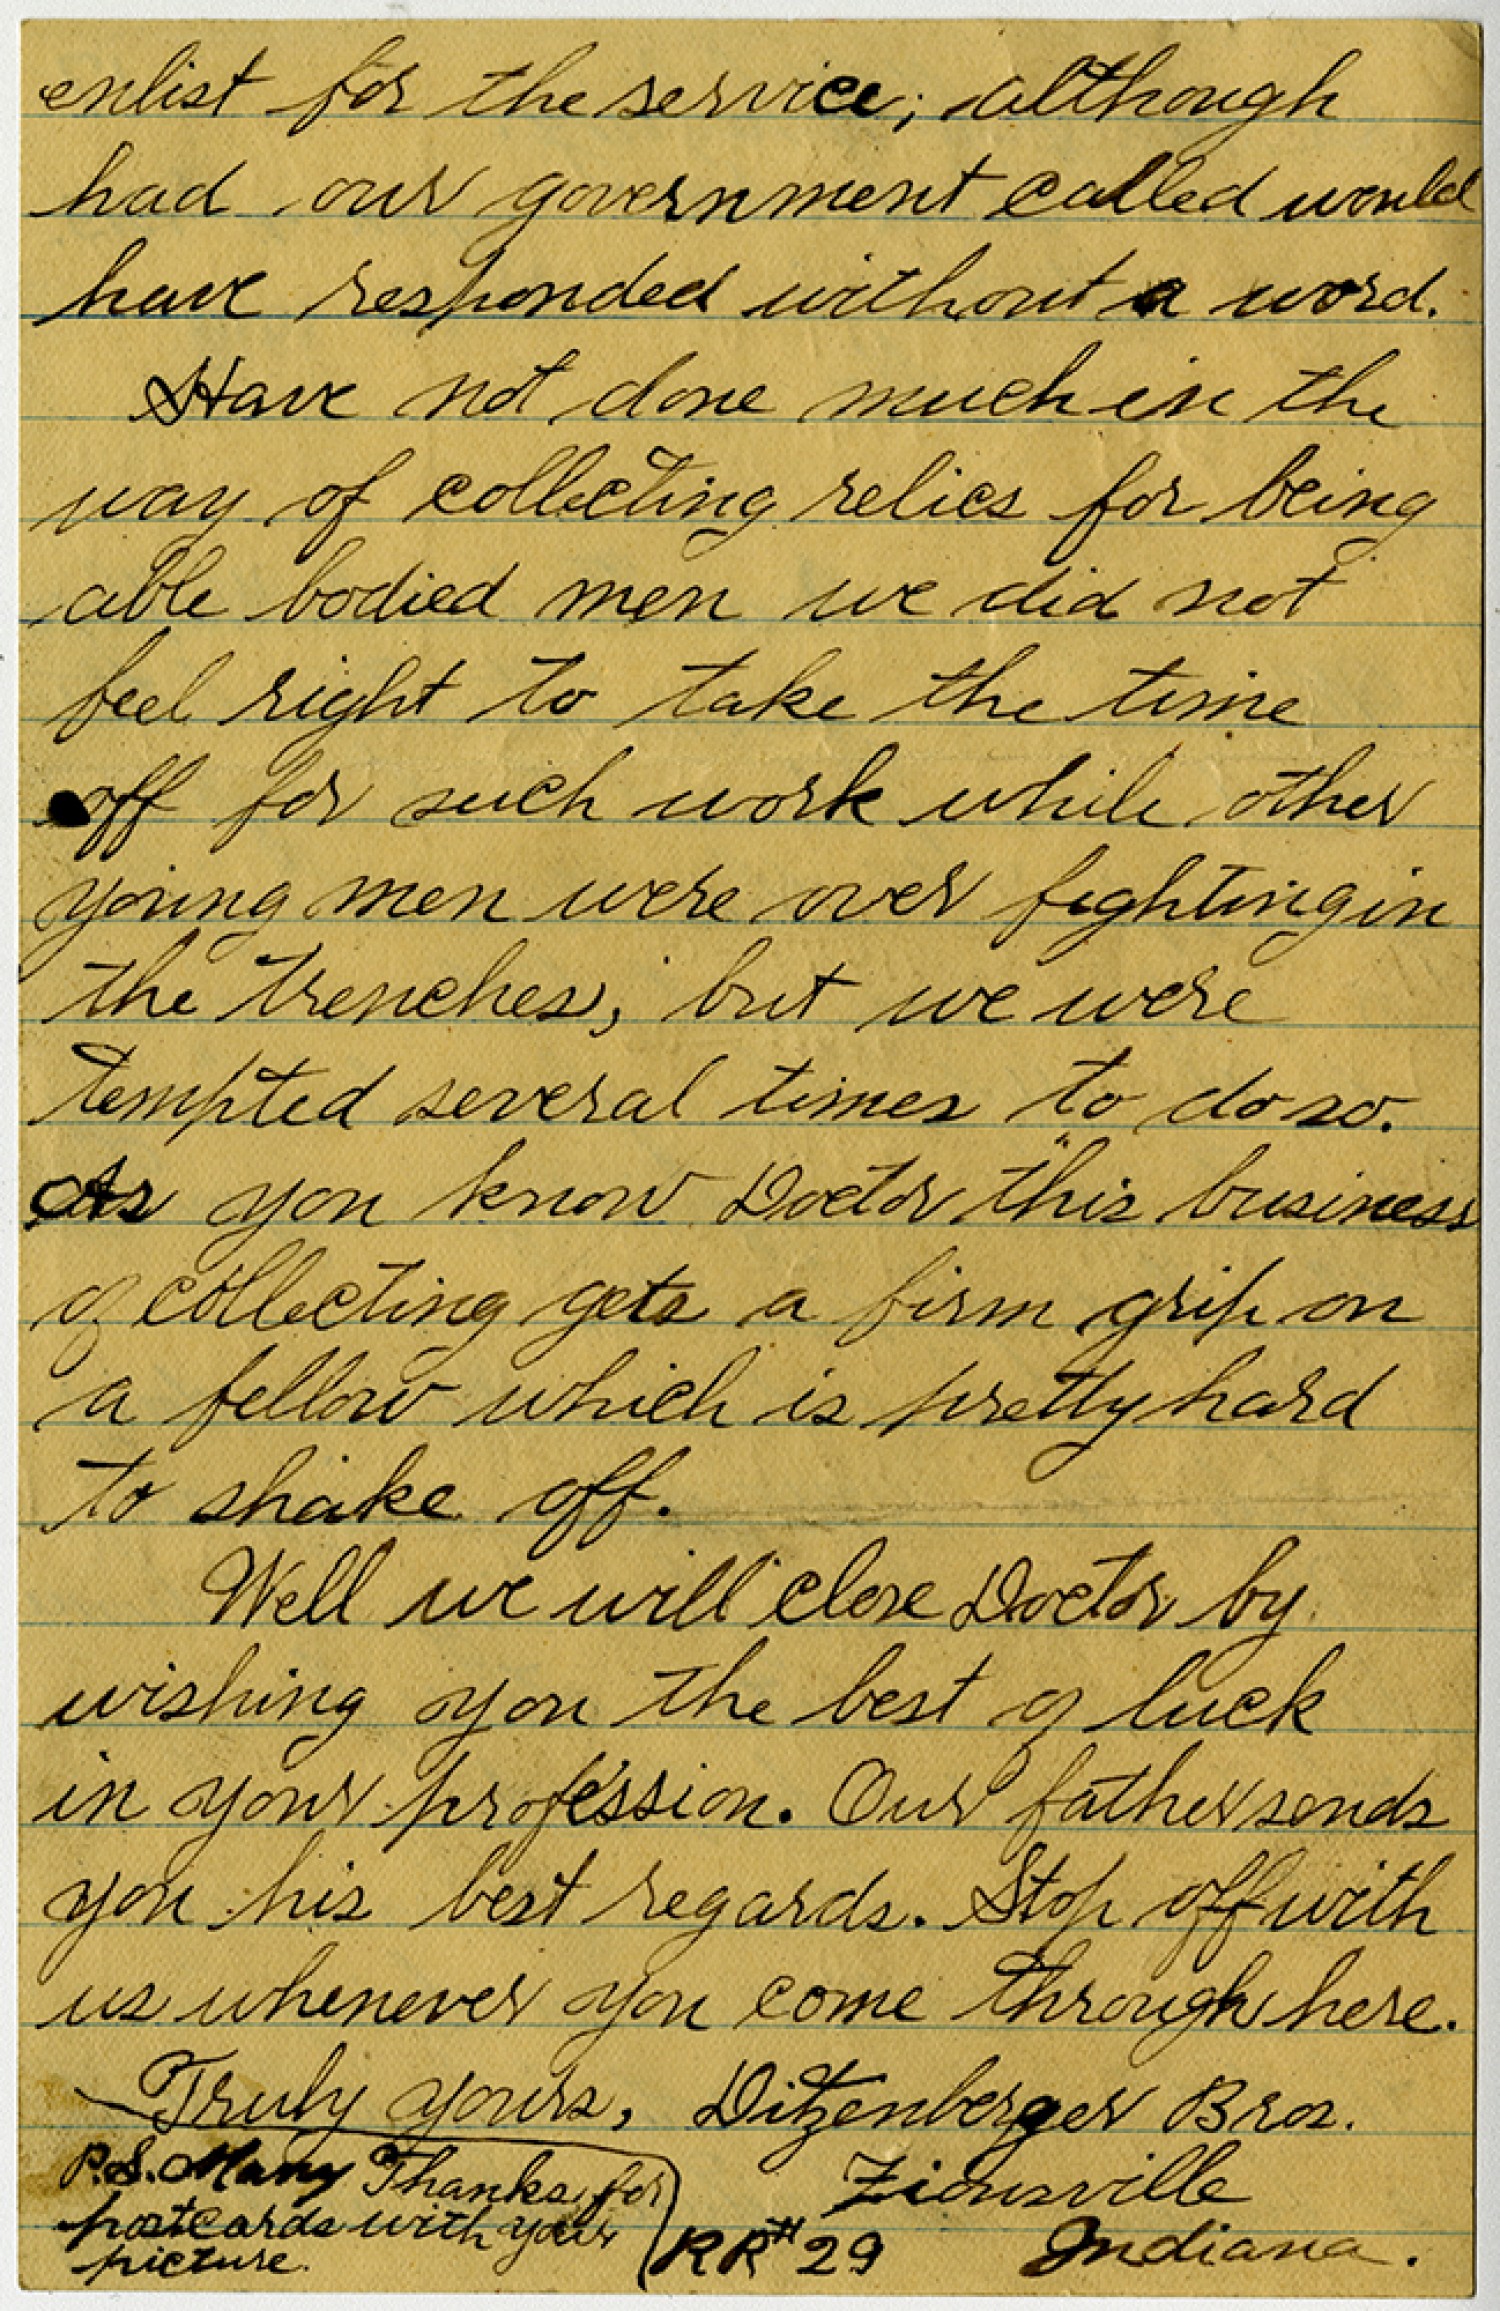 enlist for the service; although
had our government called would
have responded without a word.
Have not done much in the
way of collecting relics for being
able bodied men we did not
feel right to take the time
off for such work while other
young men were over fighting in
the trenches, but we were
tempted several times to do so.
As you know Doctor "this business
of collecting gets a firm grip on
a fellow which is pretty hard
to shake off.
Well we will close Doctor by
wishing you the best of luck
in your profession. Our father sends
you his best regards. Stop off with
us whenever you come through here.
Truly yours, Ditzenberger Bros.
Zionsville
RR# 29 Indiana.
P.S. Many Thanks for
postcards with your
picture.